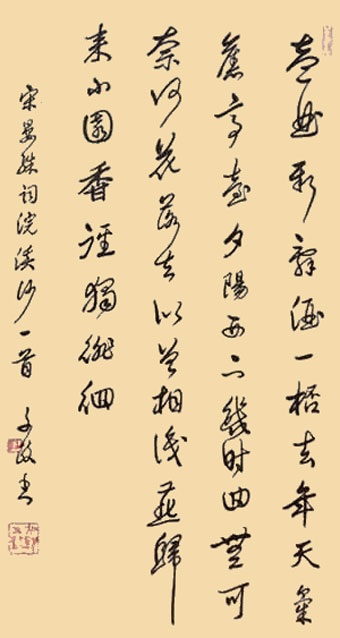 壹曲新辭酒一桮去年天氣
舊亭臺夕陽西下幾时回無可
奈何花落去似曾相識燕歸
来小園香徑獨徘徊
宋晏殊詞浣溪沙一首